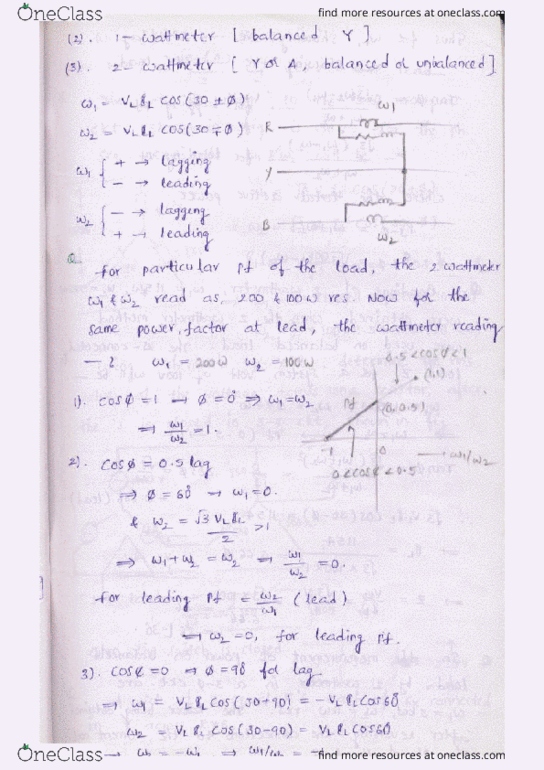 find more resources at oneclass.com
OneClass
(2). 1 - wattmeter [ balanced Y ]
(3). 2 - wattmeter [ Y or Δ, balanced or unbalanced]
ω₁ = VL IL cos(30 ± ϕ)
ω₂ = VL IL cos(30 ∓ ϕ)
ω₁ { + → lagging
− → leading
ω₂ { − → lagging
+ → leading
ω1
R
Y
B
ω2
Q
For particular Pf of the load, the 2 wattmeter
ω₁ & ω₂ read as, 200 & 100 ω res. Now for the
same power factor at lead, the wattmeter reading
— ? ω₁ = 200 ω ω₂ = 100 ω
1). cosϕ = 1 → ϕ = 0° ⇒ ω₁ = ω₂
⇒ ω₁/ω₂ = 1.
0.5 < cosϕ < 1
(1,1)
Pf
(0, 0.5)
-1
0
→ ω₁/ω₂
0 < cosϕ < 0.5
2). cosϕ = 0.5 lag
⇒ ϕ = 60° → ω₁ = 0.
& ω₂ = √3 VL IL / 2 > 1
⇒ ω₁ + ω₂ = ω₂ → ω₁/ω₂ = 0.
For leading Pf = ω₂/ω₁ (lead)
→ ω₂ = 0, for leading Pf.
3). cosϕ = 0 → ϕ = 90° for lag
⇒ ω₁ = VL IL cos(30+90) = − VL IL cos60°
ω₂ = VL IL cos(30-90) = VL IL cos60°
→ ω₁ = −ω₂ ⇒ ω₁/ω₂ =
OneClass
find more resources at oneclass.com